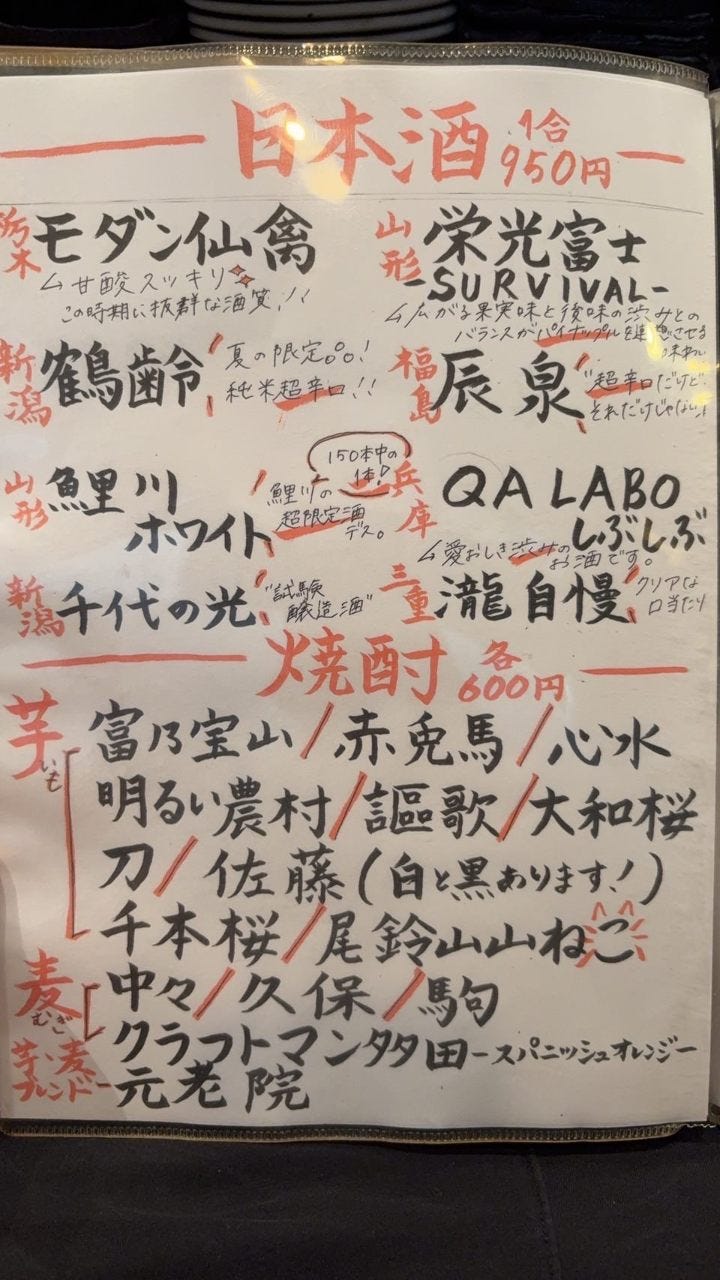 日本酒 1合 950円
栃木 モダン仙禽
甘酸スッキリ
この時期に抜群な酒質!!
山形 栄光富士
-SURVIVAL-
広がる果実味と後味の渋みとの
バランスがパイナップルを連想させる
味わい
新潟 鶴齢
夏の限定品!
純米超辛口!!
福島 辰泉
"超辛口だけど
それだけじゃない
山形 鯉川
ホワイト
150本中の
1本!
鯉川の
超限定酒
デス。
兵庫 QA LABO
しぶしぶ
愛おしき渋みの
お酒です。
新潟 千代の光
"試験
醸造酒"
三重 瀧自慢
クリアな
口当たり
焼酎 各 600円
芋 いも
富乃宝山/赤兎馬/心水
明るい農村/謳歌/大和桜
刀/佐藤(白と黒あります!)
千本桜/尾鈴山山ねこ
麦 むぎ
中々/久保/駒
クラフトマン多田-スパニッシュオレンジー
芋い麦
ブレンドー 元老院